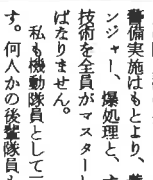 警備実施はもとより、
ンジャー、爆処理と、
技術を全員がマスター
ばなりません。
私も機動隊員として
す。何人かの後輩隊員